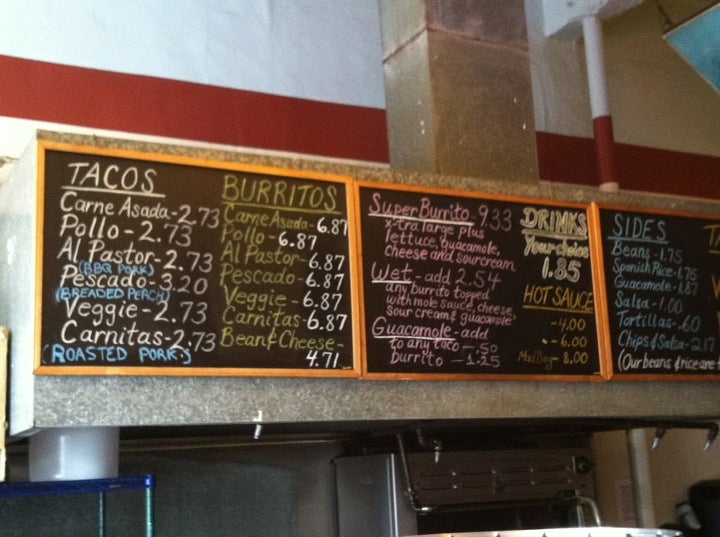 TACOS
Carne Asada-2.73
Pollo-2.73
Al Pastor-2.73
(BBQ PORK)
Pescado-3.20
(BREADED PERCH)
Veggie-2.73
Carnitas-2.73
(ROASTED PORK)
BURRITOS
Carne Asada-6.87
Pollo-6.87
Al Pastor-6.87
Pescado-6.87
Veggie-6.87
Carnitas-6.87
Bean & Cheese-
4.71
Super Burrito-9.33
x-tra large plus
lettuce, guacamole,
cheese and sour cream
Wet-add 2.54
any burrito topped
with mole sauce, cheese,
sour cream & guacamole
Guacamole-add
to any taco-.50
burrito-1.25
DRINKS
Your choice
1.85
HOT SAUCE
-4.00
-6.00
Mad Dog-8.00
SIDES
Beans-1.75
Spanish Rice-1.75
Guacamole-1.87
Salsa-1.00
Tortillas-.60
Chips & Salsa-2.17
(Our beans & rice are